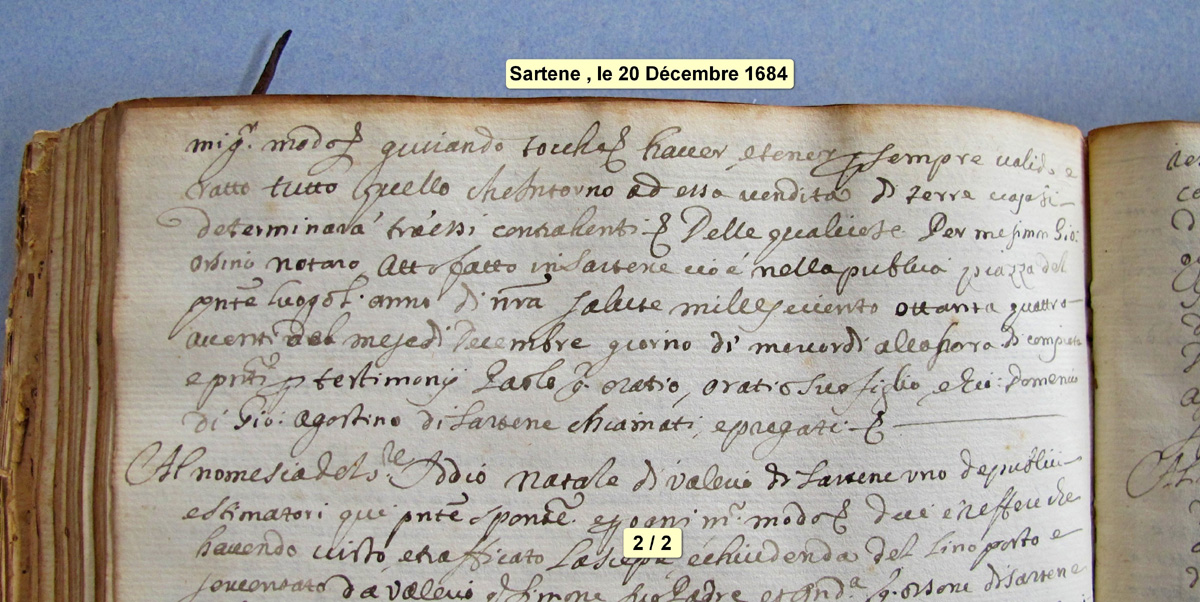 Sartene , le 20 Décembre 1684
mig.r modo giurando tocch haver e tener p sempre valido e
ratto tutto quello che intorno ad essa vendita di terre
determinarà trà essi contrahenti Delle quali cose Per me Simon Gio:
orsino notaro Atto fatto in Sartene cio è nella publica piazza del
pnte luogo l'anno di nra salute mille seicento ottanta quattro
a venti del mese di Decembre giorno di mercordi alla hora di compieta
e pnti p testimonij Paolo q. oratio, oratio suo figlio e Gio: Domenico
di Gio: Agostino di Sartene chiamati, e pregati
Al nome sia del S.re Iddio Natale di Valerio di Sartene uno de publici
estimatori qui pnte sponte e p ogni m.r modo dice e rifferi che
havendo visto, e trafficato e chiudenda del Lino posto e
2 / 2
da Valerio q. Simone suo Padre et And.a q. orsone di Sartene